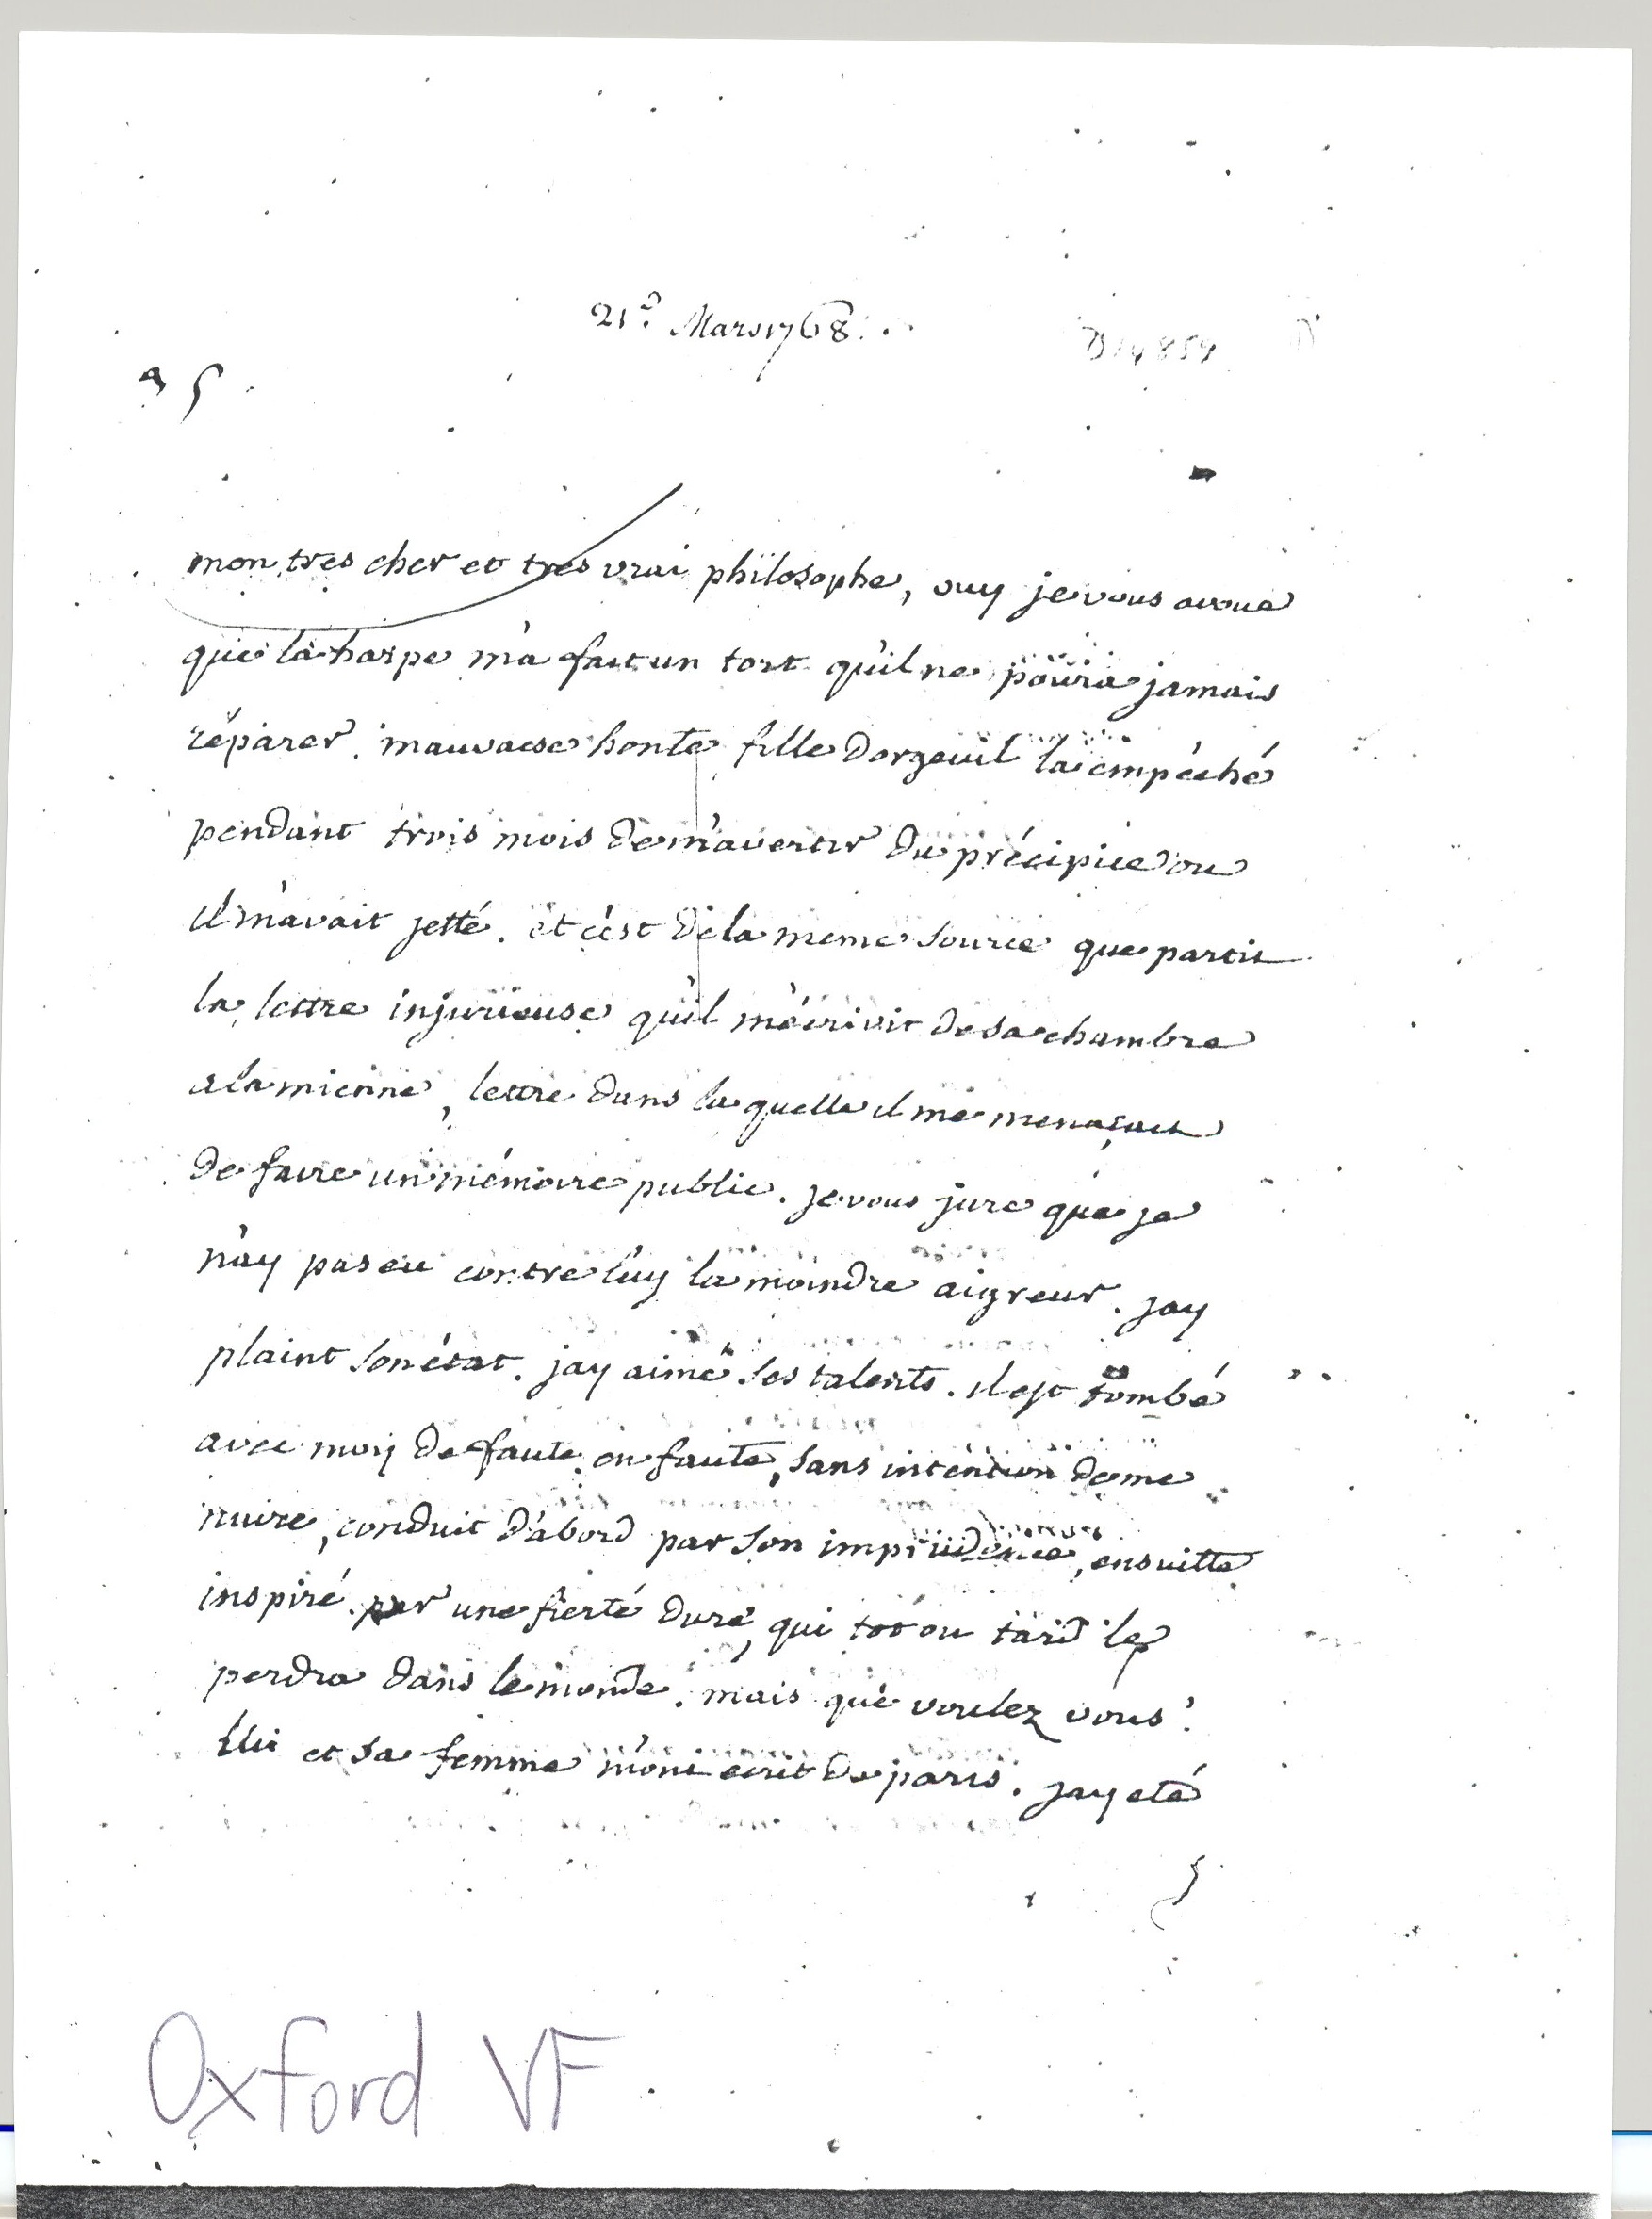 21e Mars 1768.
D14854
mon tres cher et tres vrai philosophe, ouy je vous avoue
que la harpe m'a fait un tort qu'il ne poura jamais
réparer. mauvaise honte fille dorgeuil la empéché
pendant trois mois de m'avertir du précipice ou
il m'avait jetté. et c'est de la meme source que partit
la lettre injurieuse qu'il m'écrivit de sa chambre
a la mienne, lettre dans la quelle il me menaçait
de faire un mémoire public. je vous jure que je
n'ay pas eu contre luy la moindre aigreur. jay
plaint son état. jay aimé ses talents. il est tombé
avec moy de faute en faute, sans intention de me
nuire, conduit d'abord par son imprudence, ensuitte
inspiré par une fierté dure, qui tot ou tard le
perdra dans le monde. mais que voulez vous?
lui et sa femme m'ont écrit de paris. jay eté
Oxford VF